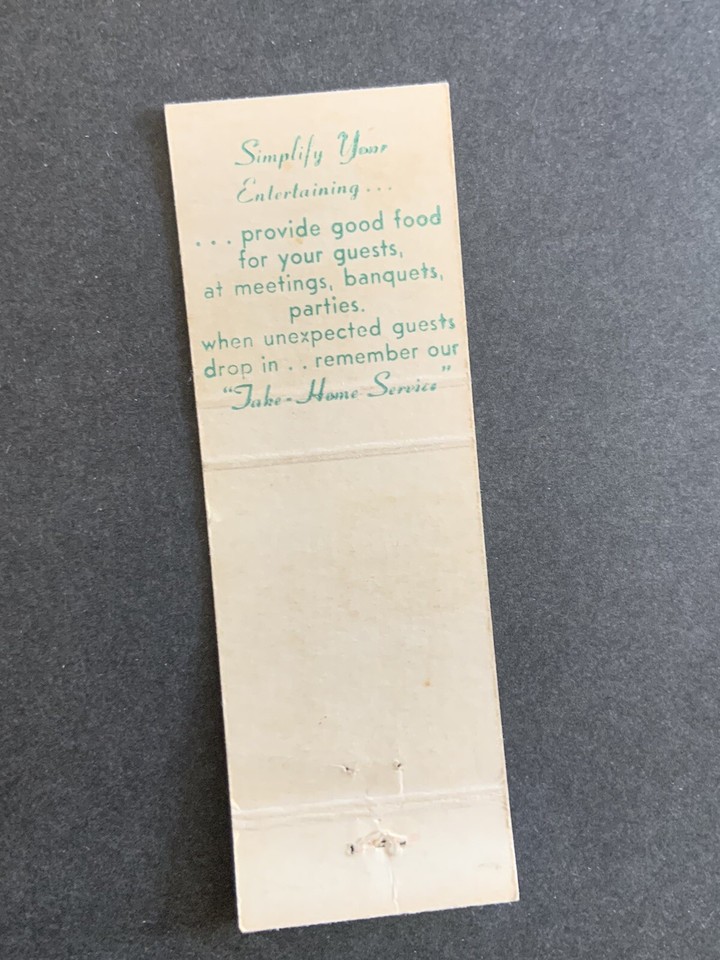 Simplify Your
Entertaining...
... provide good food
for your guests,
at meetings, banquets,
parties.
when unexpected guests
drop in .. remember our
"Take-Home Service"